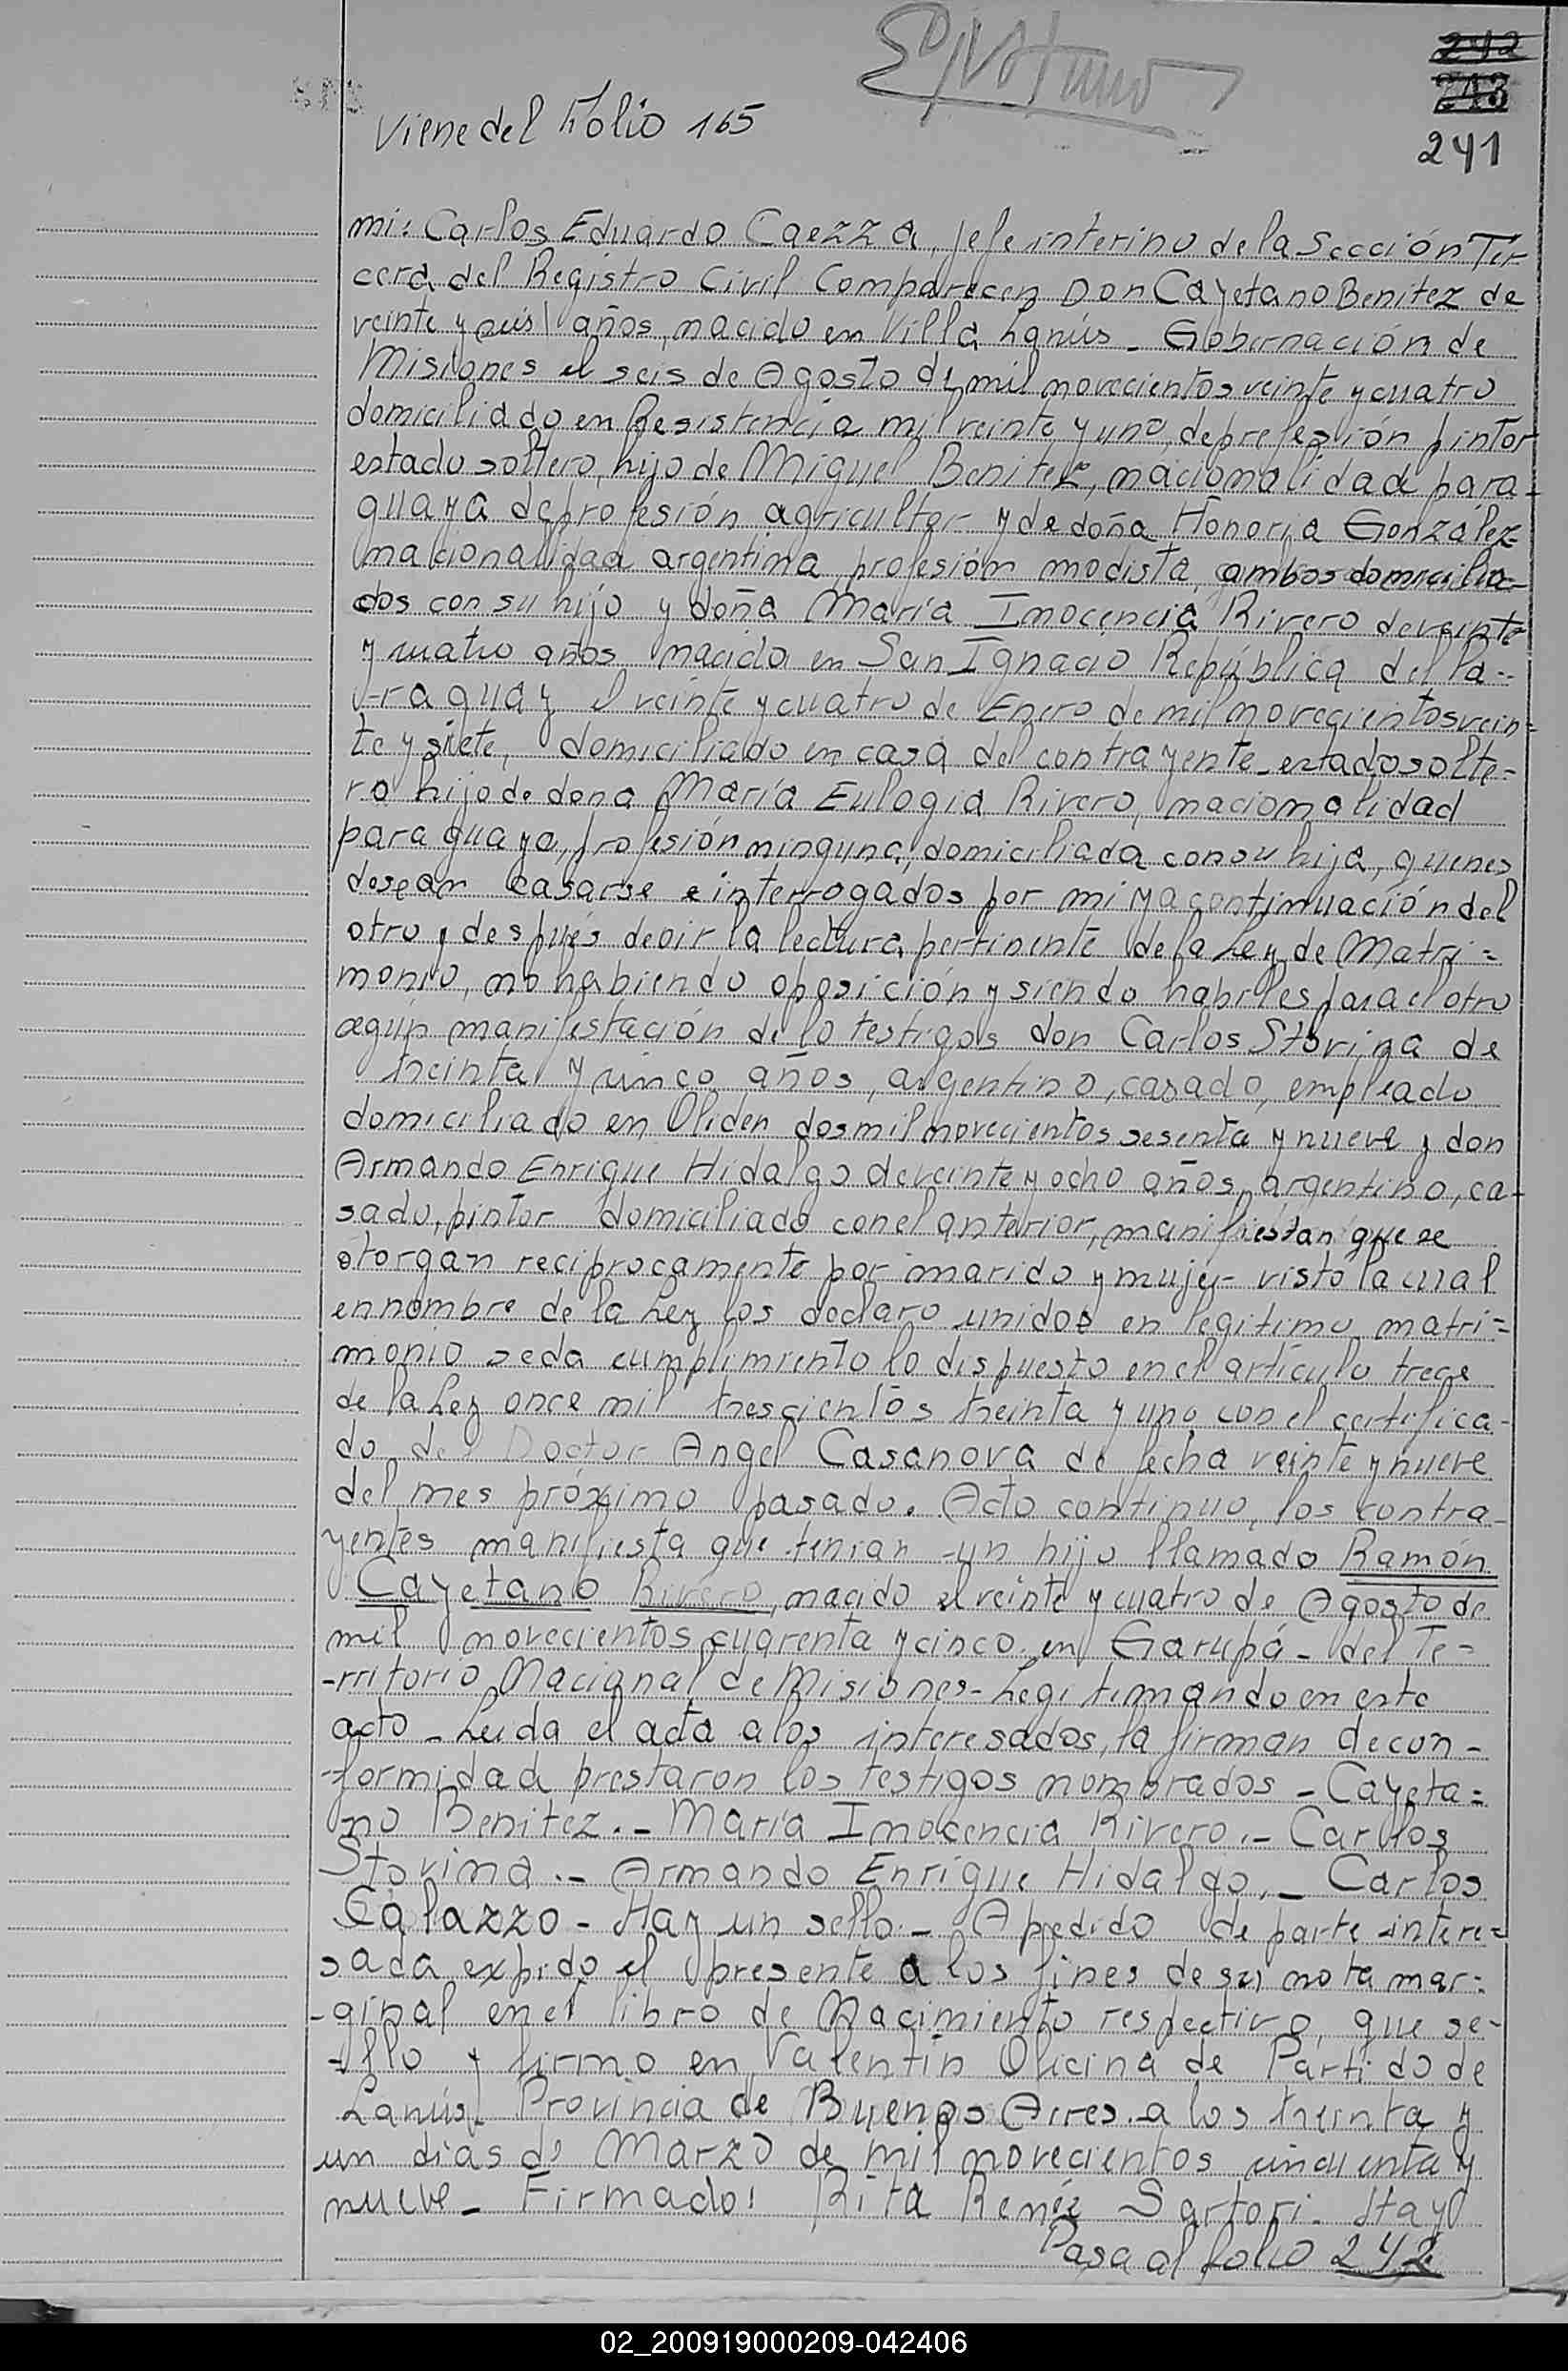 242
243
241
Viene del Folio 165
mi: Carlos Eduardo Caezza, jefe interino de la Sección Ter
cera del Registro Civil Comparecen Don Cayetano Benitez de
veinte y seis años, nacido en Villa Lanús - Gobernación de
Misiones el seis de Agosto de mil novecientos veinte y cuatro
domiciliado en Resistencia mil veinte y uno, de profesión pintor
estado soltero, hijo de Miguel Benitez, nacionalidad para-
guaya de profesión agricultor y de doña Honoria González
nacionalidad argentina, profesión modista, ambos domicilia-
dos con su hijo y doña María Inocencia Rivero de veinte
y cuatro años nacida en San Ignacio República del Pa--
-raguay el veinte y cuatro de Enero de mil novecientos vein=
te y siete, domiciliado en casa del contrayente - estado solte=
ro hijo de dona María Eulogia Rivero, nacionalidad
paraguaya, profesión ninguna, domiciliada con su hija, quienes
desean casarse e interrogados por mi y a continuación del
otro y después de oir la lectura pertinente de la Ley de Matri=
monio, no habiendo oposición y siendo habiles para el otro
segun manifestación de lo testigos don Carlos Storina de
treinta y cinco años, argentino, casado, empleado
domiciliado en Oliden dos mil novecientos sesenta y nueve y don
Armando Enrique Hidalgo de veinte y ocho años, argentino, ca-
sado, pintor domiciliado con el anterior, manifiestan que se
otorgan reciprocamente por marido y mujer - visto la cual
en nombre de la Ley los declaro unidos en legitimo matri=
monio se da cumplimiento lo dispuesto en el artículo trece
de la Ley once mil trescientos treinta y uno con el certifica-
do del Doctor Angel Casanova de fecha veinte y nueve
del mes próximo pasado. Acto continuo, los contra-
yentes manifiesta que tenian un hijo llamado Ramón
Cayetano Rivero, nacido el veinte y cuatro de Agosto de
mil novecientos cuarenta y cinco en Garupá - del Te=
-rritorio Nacional de Misiones - Legitimando en este
acto - Leida el acta a los interesados, la firman de con-
-formidad prestaron los testigos nombrados - Cayeta=
no Benitez. - María Inocencia Rivero. - Carlos
Storina. - Armando Enrique Hidalgo. - Carlos
Calazzo - Hay un sello. - A pedido de parte intere=
sada expido el presente a los fines de su nota mar=
-ginal en el libro de Nacimiento respectivo, que se-
-llo y firmo en Valentín Oficina de Partido de
Lanús - Provincia de Buenos Aires - a los treinta y
un dias de Marzo de mil novecientos cincuenta y
nueve - Firmado: Rita Renée Sartori - Hay
Pasa al folio 242
02_200919000209-042406